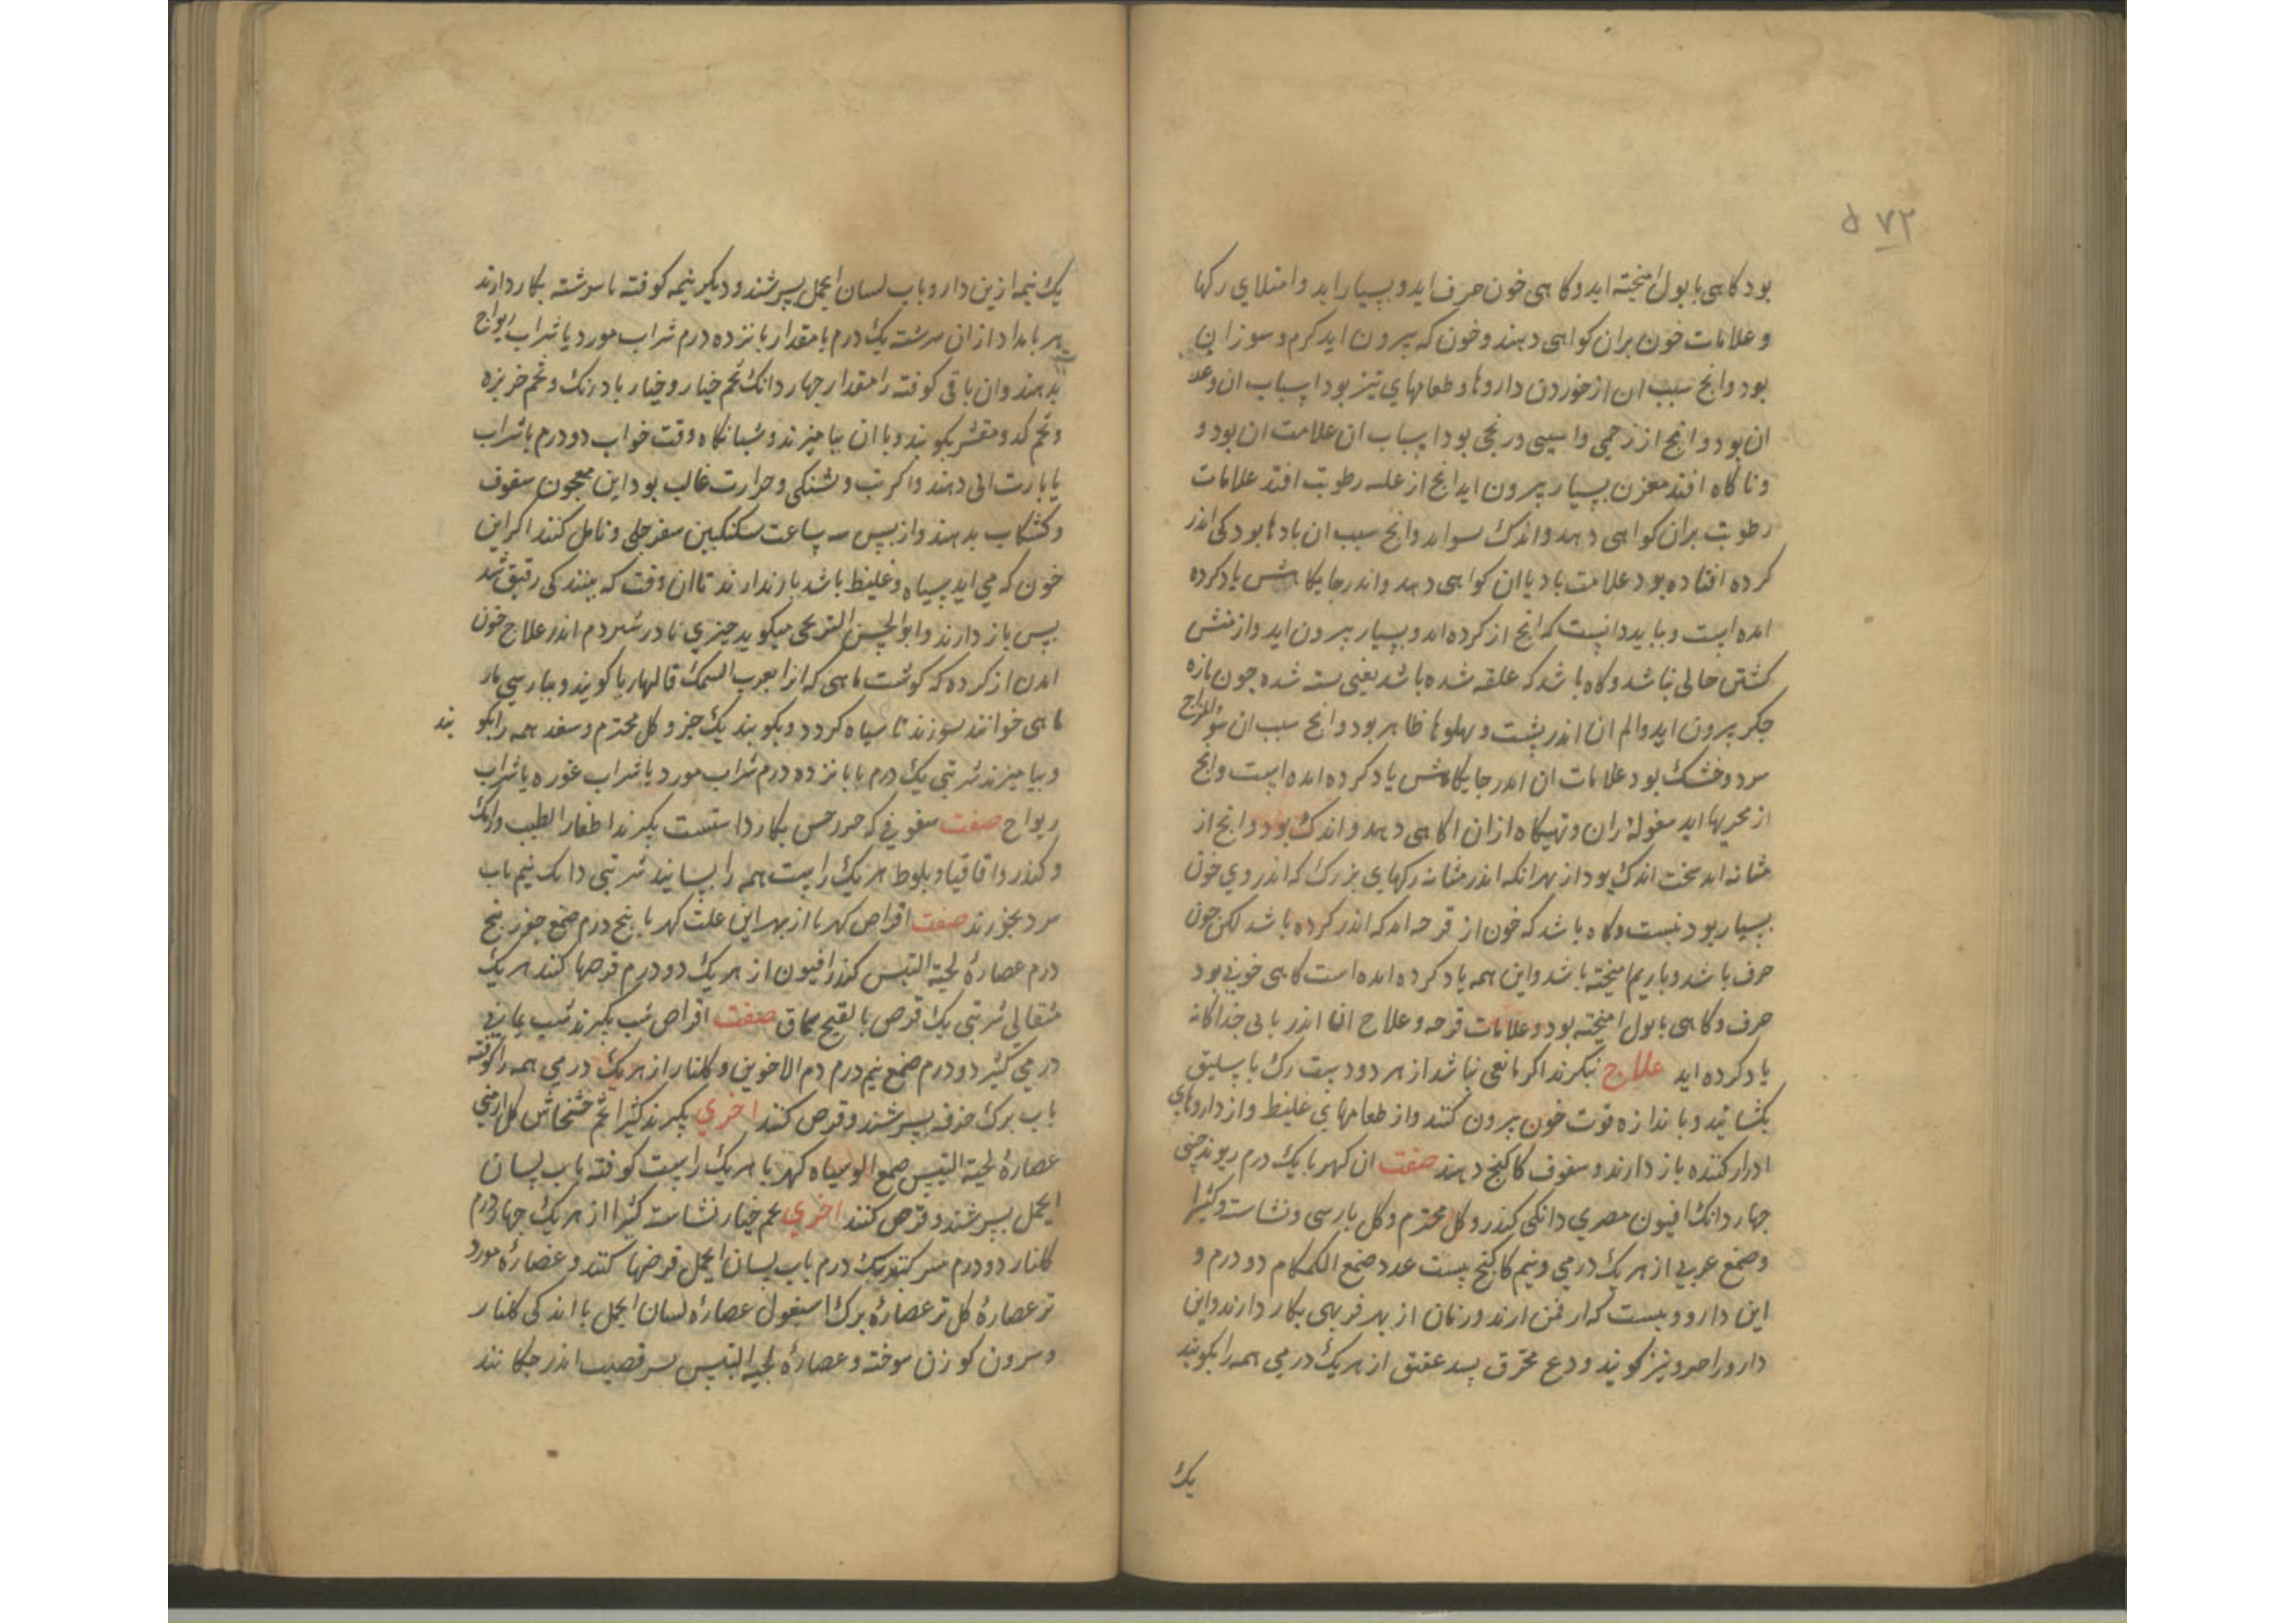 ۵۷۲
بود کاهی با بول امیخته اید و کاهی خون صرف اید و بسیار اید و امتلای رکها
و علامات خون بران کواهی دهند و خون که بیرون اید کرم و سوزان
بود و انج سبب ان از خوردن داروها و طعامهای تیز بود اسباب ان و علا
ان بود و انج از زخمی و اسیبی و رنجی بود اسباب ان علامت ان بود و
و ناکاه افتد بسیار بیرون اید انج از رطوبت افتد علامات
رطوبت بران کواهی دهد و اندک و انج سبب ان بادها بود کی اندر
کرده افتاده بود علامت باد با ان کواهی دهد و اندر جایکاهش یاد کرده
امده است و بباید دانست که انج از کرده اید و بسیار بیرون اید و از منش
کشتن خالی نباشد و کاه باشد که علقه شده باشد یعنی بسته شده جون بازه
جکر بیرون اید و الم ان اندر بشت و بهلوها ظاهر بود و انج سبب ان سؤ المزاج
سرد و خشک بود علامات ان اندر جایکاهش یاد کرده امده است و انج
از مجریها اید مغولهٔ ران و تهیکاه ازان اکاهی دهد و اندک بود و انج از
مثانه اید سخت اندک بود از بهر انکه اندر مثانه رکهای بزرک که اندر وی خون
بسیار بود نیست و کاه باشد که خون از قرحه اید که اندر کرده باشد لکن جون
صرف باشد و با ریم امیخته باشد و این همه یاد کرده امده است کاهی خونی بود
صرف و کاهی با بول امیخته بود و علامات قرحه و علاج ان اندر بابی جداکانه
یاد کرده اید علاج نیکرند اکر مانعی نباشد از هر دو دست رک باسلیق
بکشایند و باندازه قوت خون بیرون کنند و از طعامهای غلیظ و از داروهای
ادرار کننده باز دارند و سفوف کاکنج دهند صفت ان کهربا یک درم ریوند جینی
جهار دانک افیون مصری دانکی کندر و کل مختوم و کل بارسی و نشاسته و کثیرا
و صمغ عربی از هر یک درمی و نیم کاکنج بیست عدد صمغ الکمکام دو درم و
این دارو بیست که از یمن ارند و زنان از بهر فربهی بکار دارند و این
دارو را صرو نیز کویند ودع محرق بسد عقیق از هر یک درمی همه را بکوبند
یک
یک نیمه ازین دارو باب لسان الحمل بسرشند و دیکر نیمه کوفته ناسرشته بکار دارند
هر بامداد ازان سرشته یک درم با مقدار بانزده درم شراب مورد یا شراب ریواج
بدهند و ان باقی کوفته را مقدار جهار دانک تخم خیار و خیار بادرنک و تخم خربزه
و تخم کدو مقشر بکوبند و با ان بیامیزند و شبانکاه وقت خواب دو درم با شراب
یا باب دهند و اکر تب و تشنکی و حرارت غالب بود این معجون سفوف
و کشکاب بدهند و از بس سه ساعت سکنکبین سفرجلی و تامل کنند اکر این
خون که می اید سیاه و غلیظ باشد باز ندارند تا ان وقت که ببینند کی رقیق شد
بس باز دارند و ابوالحسن الترنجی میکوید جیزی نادر شمردم اندر علاج خون
امدن از کرده که کوشت ماهی که انرا بعرب السمک کویند و ببارسی مار
ماهی خوانند بسوزند تا سیاه کردد و بکوبند یک جز و کل مختوم و سفد همه را بکو بند
و بیامیزند شربتی یک درم با بانزده درم شراب مورد یا شراب غوره یا شراب
ریواج صفت سفوفی که بکار داشتست بکیرند اظفار الطیب و
و کندر و اقاقیا و بلوط هر یک راست همه را بسایند شربتی دانک نیم باب
سرد بخورند صفت اقراص کهربا از بهر این علت کهربا بنج درم صمغ جوز بنج
درم عصارهٔ لحیة التیس کندر افیون از هر یک دو درم قرصها کنند هر یک
مثقالی شربتی یک قرص با نقیع سماق صفت اقراص شب بکیرند شب یمانی
درمی کثیرا دو درم صمغ نیم درم دم الاخوین و کلنار از هر یک درمی همه را کوفته
باب برک خرفه بسرشند و قرص کنند اخری بکیرند کثیرا تخم خشخاش کل ارمنی
عصارهٔ لحیة التیس صمغ الو سیاه کهربا هر یک راست کوفته باب لسان
الحمل بسرشند و قرص کنند اخری تخم خیار نشاسته کثیرا از هر یک جهار درم
کلنار دو درم یک درم باب لسان الحمل قرصها کنند و عصارهٔ مورد
تر عصارهٔ کل تر عصارهٔ برک اسبغول عصاره لسان الحمل با اندکی کلنار
و سرون کوزن سوخته و عصارهٔ لحیة التیس بسر قضیب اندر جکانند